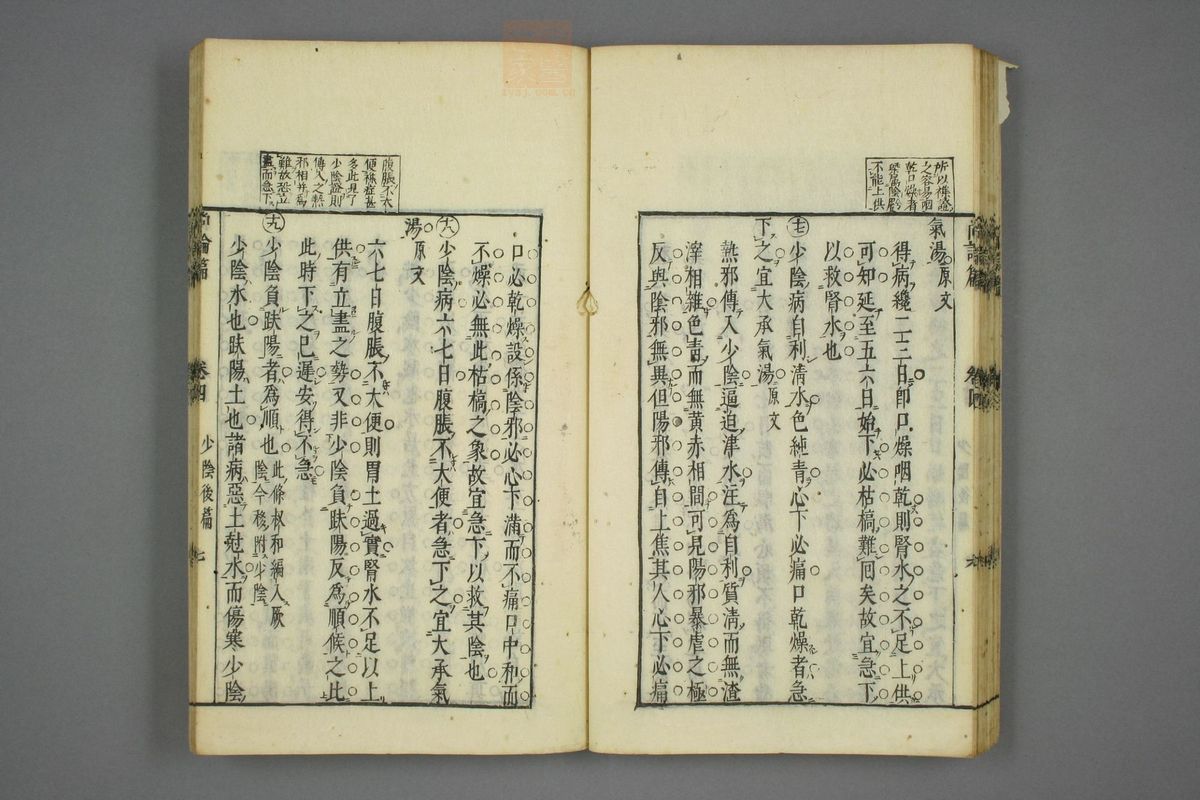 所以燥證
之容易咽
乾口燥者
不能上供
氣湯原文
得病纔二三日即口燥咽乾則腎水之不足上供
可知延至五六日始下必枯槁難回矣故宜急下
以救腎水也
十七少陰病自利清水色純青心下必痛口乾燥者急
下之宜大承氣湯原文
熱邪傳入少陰逼迫津水注為自利質清而無渣
滓相雜色青而無黃赤相間可見陽邪暴虐之極
反與陰邪無異但陽邪傳自上焦其人心下必痛
尚論篇
卷四
六
腹脹不大
便燥症甚
多此見了
少陰證則
傳入之熱
邪相并為
難故恐立
盡而急下
口必乾燥設係陰邪必心下滿而不痛口中和而
不燥必無此枯槁之象故宜急下以救其陰也
十八少陰病六七日腹脹不大便者急下之宜大承氣
湯原文
六七日腹脹不大便則胃土過實腎水不足以上
供有立盡之勢又非少陰負趺陽反為順候之此
此時下之已遲安得不急
十九少陰負趺陽者為順也此條叔和編入厥
陰今移附少陰
少陰水也趺陽土也諸病惡土尅水而傷寒少陰
尚論篇
卷四
少陰後篇
七